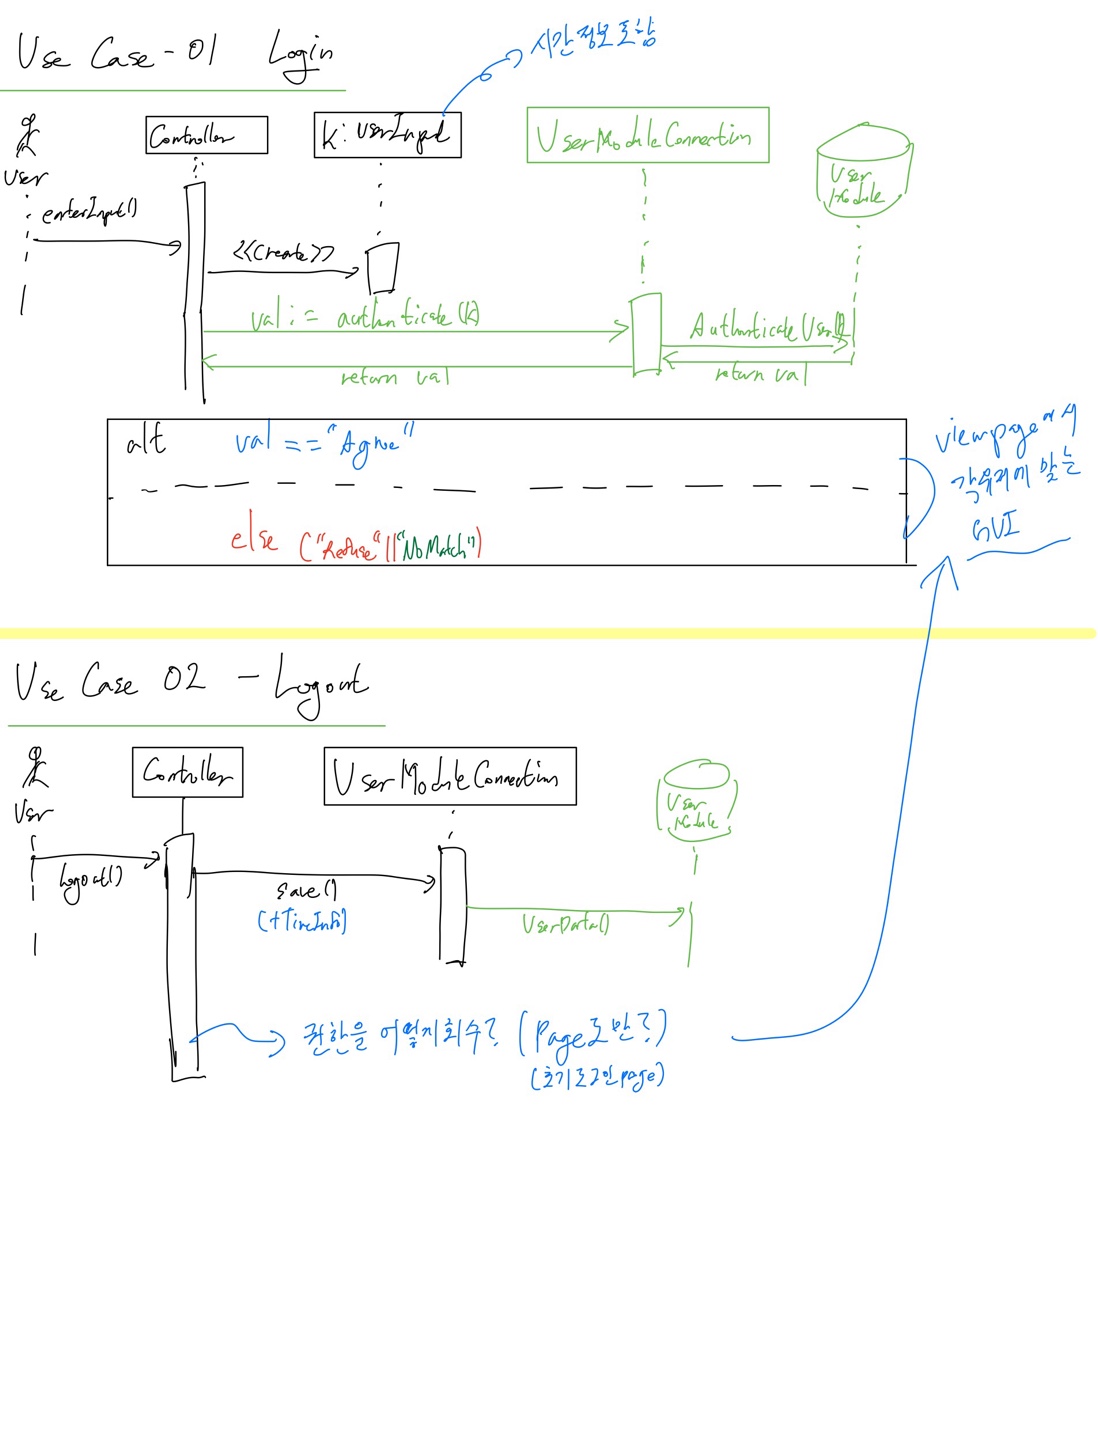 Use Case - 01 Login
시간정보포함
User
Controller
k: UserInput
UserModuleConnection
User
Module
enterInput()
<<Create>>
val := authenticate(k)
AuthenticateUser(k)
return val
return val
alt val == "Agree"
else ("Refuse" || "NoMatch")
viewpage에서
각유저에 맞는
GUI
Use Case 02 - Logout
User
Controller
UserModuleConnection
User
Module
Logout()
save()
(+TimeInfo)
UserData()
권한을 어떻게회수? (Page로반?)
(초기로그인page)